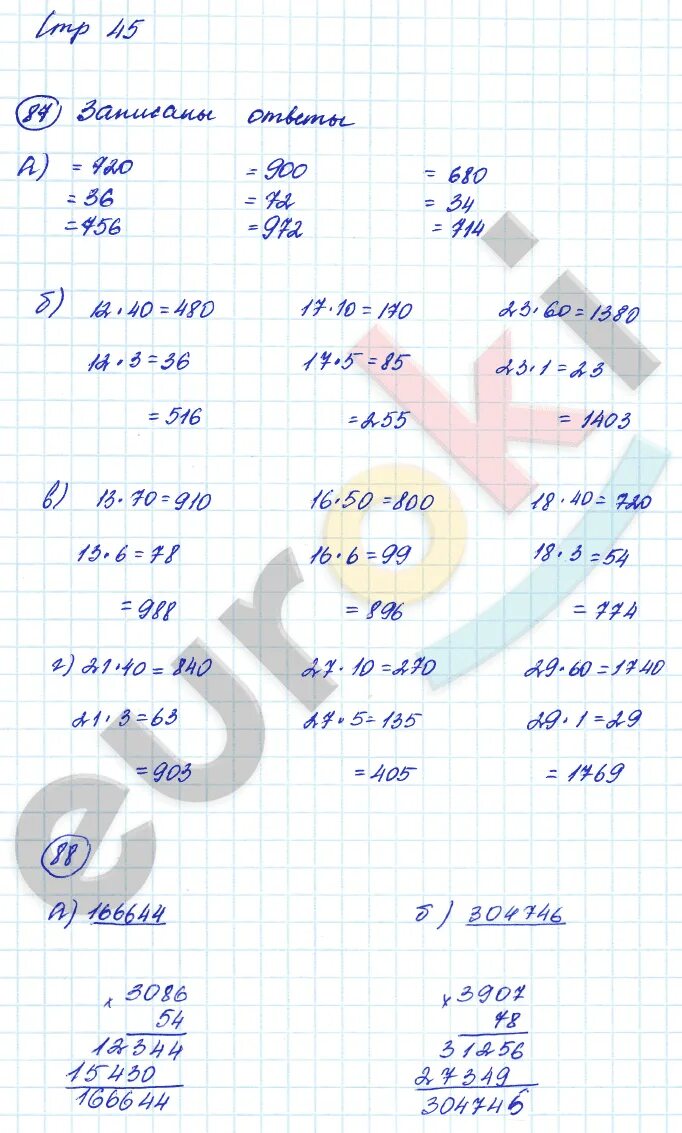 Стр 45
87 Записаны ответы
а) = 720 = 900 = 680
= 36 = 72 = 34
= 756 = 972 = 714
б) 12·40=480 17·10=170 23·60=1380
12·3=36 17·5=85 23·1=23
=516 =255 = 1403
в) 13·70=910 16·50=800 18·40=720
13·6=78 16·6=99 18·3=54
=988 = 896 = 774
г) 21·40=840 27·10=270 29·60=1740
21·3=63 27·5=135 29·1=29
=903 =405 = 1769
88
а) 166644 б) 304746
x 3086 x 3907
54 78
12344 31256
15430 27349
166644 304746
euroki